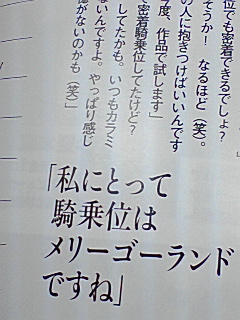 位でも密着できるでしょ？
そうか！　なるほど（笑）。
の人に抱きつけばいいんです
今度、作品で試します」
密着騎乗位してたけど？
してたかも。いつもカラミ
ないんですよ。やっぱり感じ
憶がないのかも（笑）」
「私にとって
騎乗位は
メリーゴーランド
ですね」